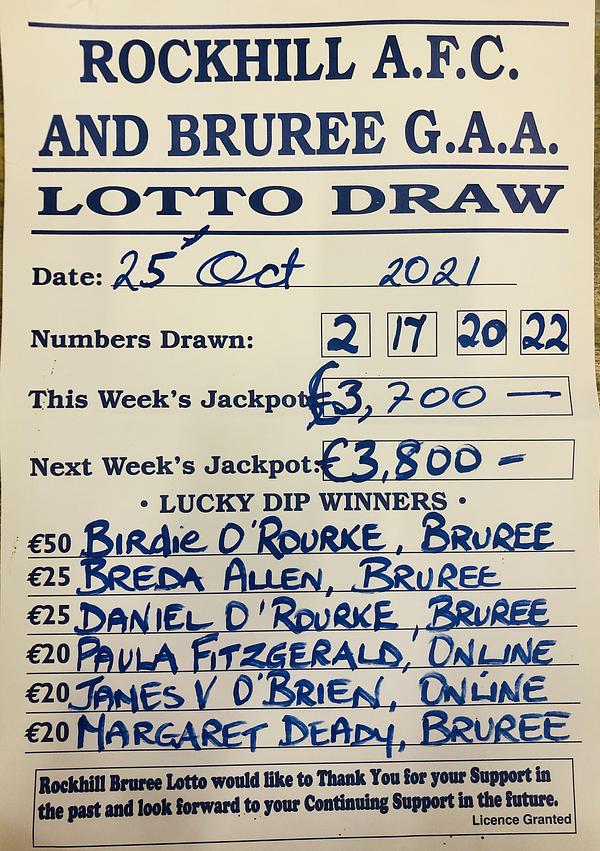 ROCKHILL A.F.C.
AND BRUREE G.A.A.
LOTTO DRAW
Date: 25 Oct 2021
Numbers Drawn: 2 17 20 22
This Week's Jackpot: €3,700 —
Next Week's Jackpot: €3,800 -
• LUCKY DIP WINNERS •
€50 Birdie O'Rourke, Bruree
€25 Breda Allen, Bruree
€25 Daniel O'Rourke, Bruree
€20 Paula Fitzgerald, Online
€20 James V O'Brien, Online
€20 Margaret Deady, Bruree
Rockhill Bruree Lotto would like to Thank You for your Support in
the past and look forward to your Continuing Support in the future.
Licence Granted